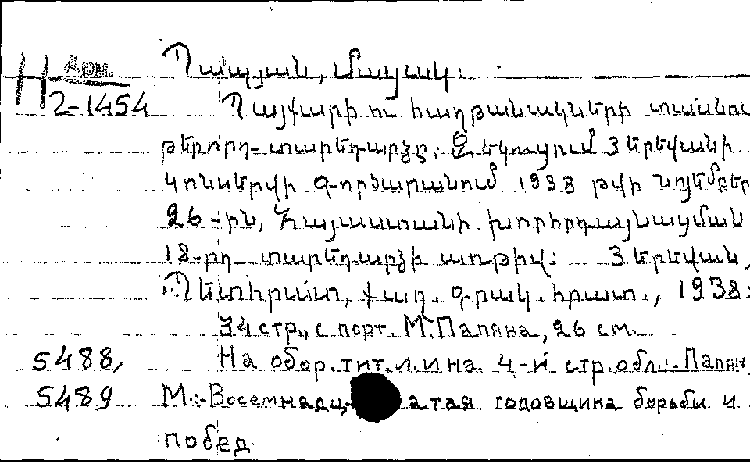 Պապյան, Մացակ.
2-1454
Պայքարի ու հաղթանակների տասնու
թերորդ տարեդարձը. Զեկուցում Յերեվանի
կոնսերվի գործարանում 1938 թվի նոյեմբեր
26-ին, Հայաստանի խորհրդայնացման
18-րդ տարեդարձի առթիվ. Յերեվան,
Պետհրատ, քաղ. գրակ. հրատ., 1938.
34 стр., с порт. М. Папяна, 26 см.
5488, На обор. тит. л. и на 4-й стр. обл.: Папян,
5489 М.-Восемнадц атая годовщина борьбы и
побед